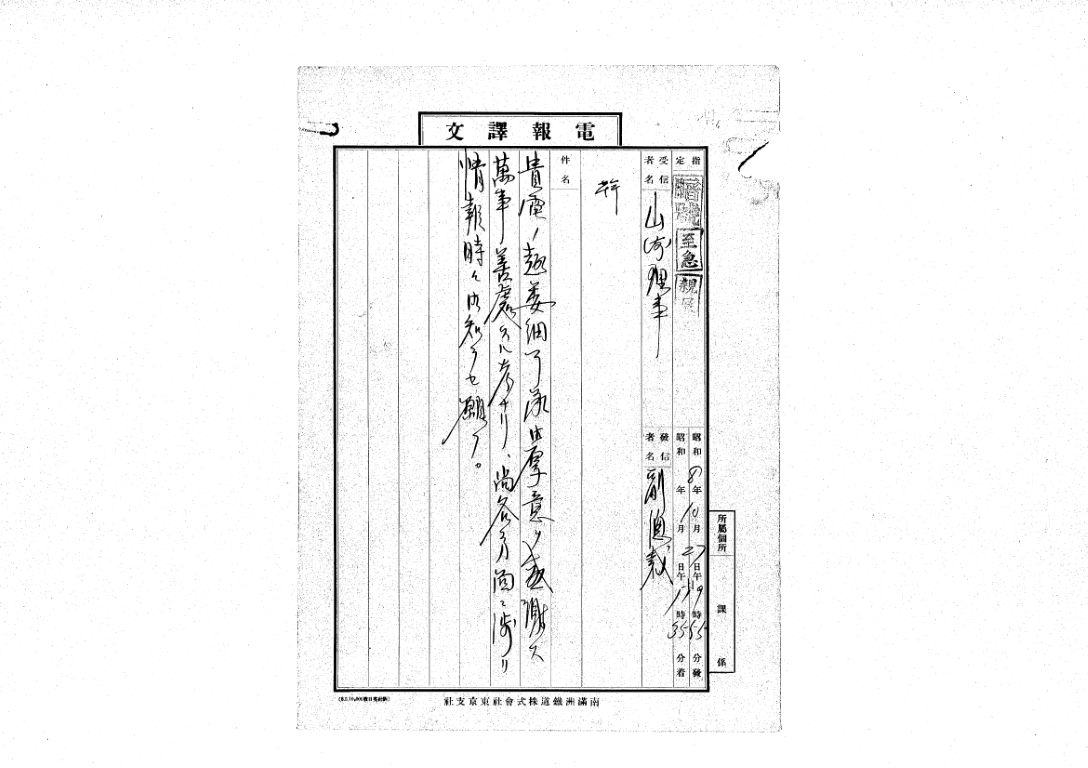 電報譯文
指定
暗號
至急
親展
受信者名
山﨑理事
發信者名
副總裁
昭和8年10月27日午 9時55分發
昭和 年 月 日午 11時35分着
所屬個所
課
係
件名
貴電ノ趣委細了承御厚意ヲ感謝ス
萬事善處スル考ナリ、尚各方面ニ渉リ
情報時々御知ラセ願フ。
南滿洲鐵道株式會社東京支社